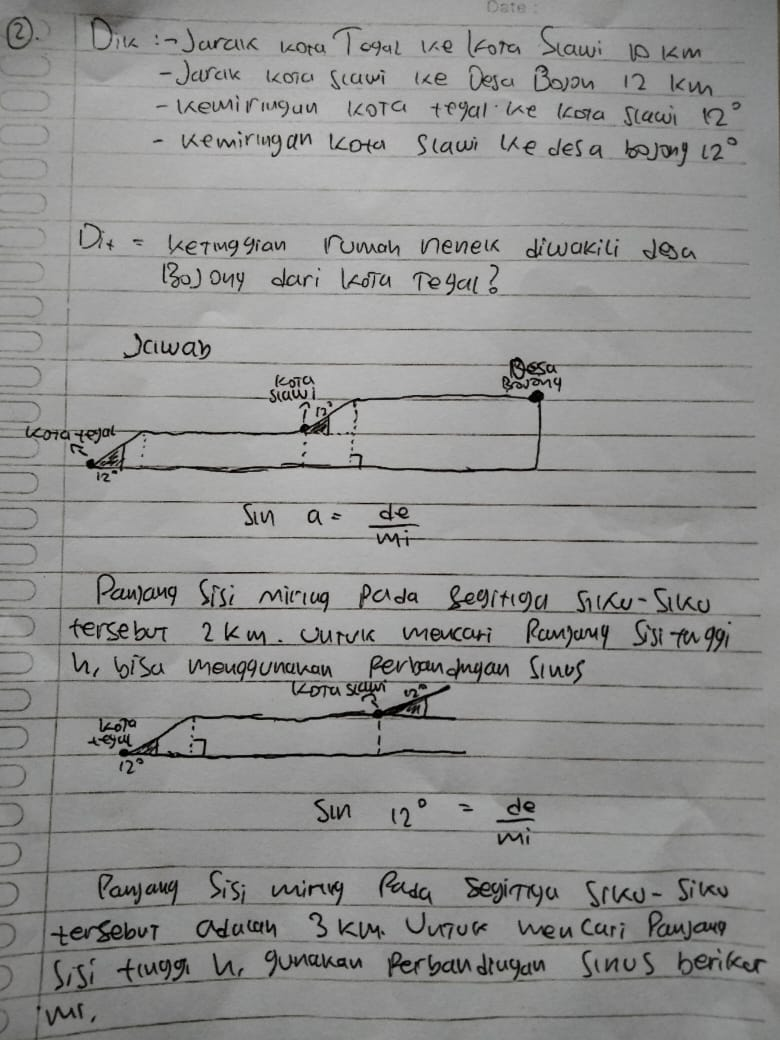 Date :
2.
Dik : - Jarak kota Tegal ke kota Slawi 10 km
- Jarak kota slawi ke Desa Bojon 12 km
- kemiringan kota tegal ke kota slawi 12°
- kemiringan kota slawi ke desa bojong 12°
Dit = ketinggian rumah nenek diwakili desa
Bojong dari kota Tegal?
Jawab
Desa
Bojong
kota
slawi
12°
kota tegal
12°
Sin a = de/mi
Panjang sisi miring pada segitiga siku-siku
tersebut 2 km. Untuk mencari Panjang sisi tinggi
h, bisa menggunakan perbandingan sinus
kota slawi 12°
kota
tegal
12°
Sin 12° = de/mi
Panjang sisi miring pada segitiga siku-siku
tersebut adalah 3 km. Untuk mencari Panjang
sisi tinggi h, gunakan perbandingan sinus berikut
ini.